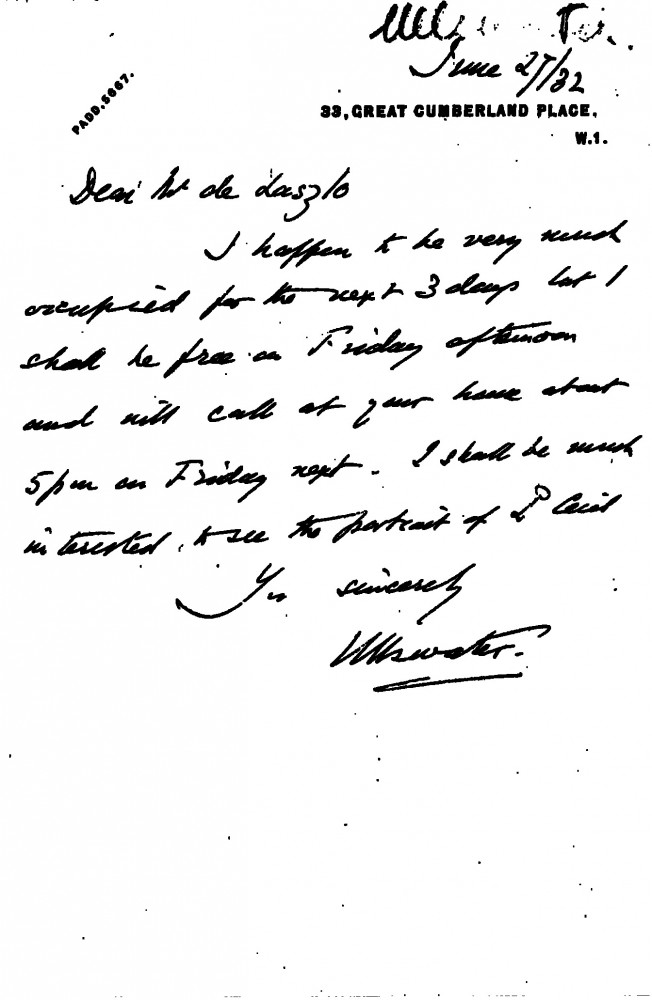 Ullswater.
June 27/32
PADD. 5667.
33, GREAT CUMBERLAND PLACE,
W.1.
Dear Mr de Laszlo
I happen to be very much
occupied for the next 3 days but I
shall be free on Friday afternoon
and will call at your house about
5 pm on Friday next. I shall be much
interested to see the portrait of Ld Cecil
Yrs sincerely
Ullswater.